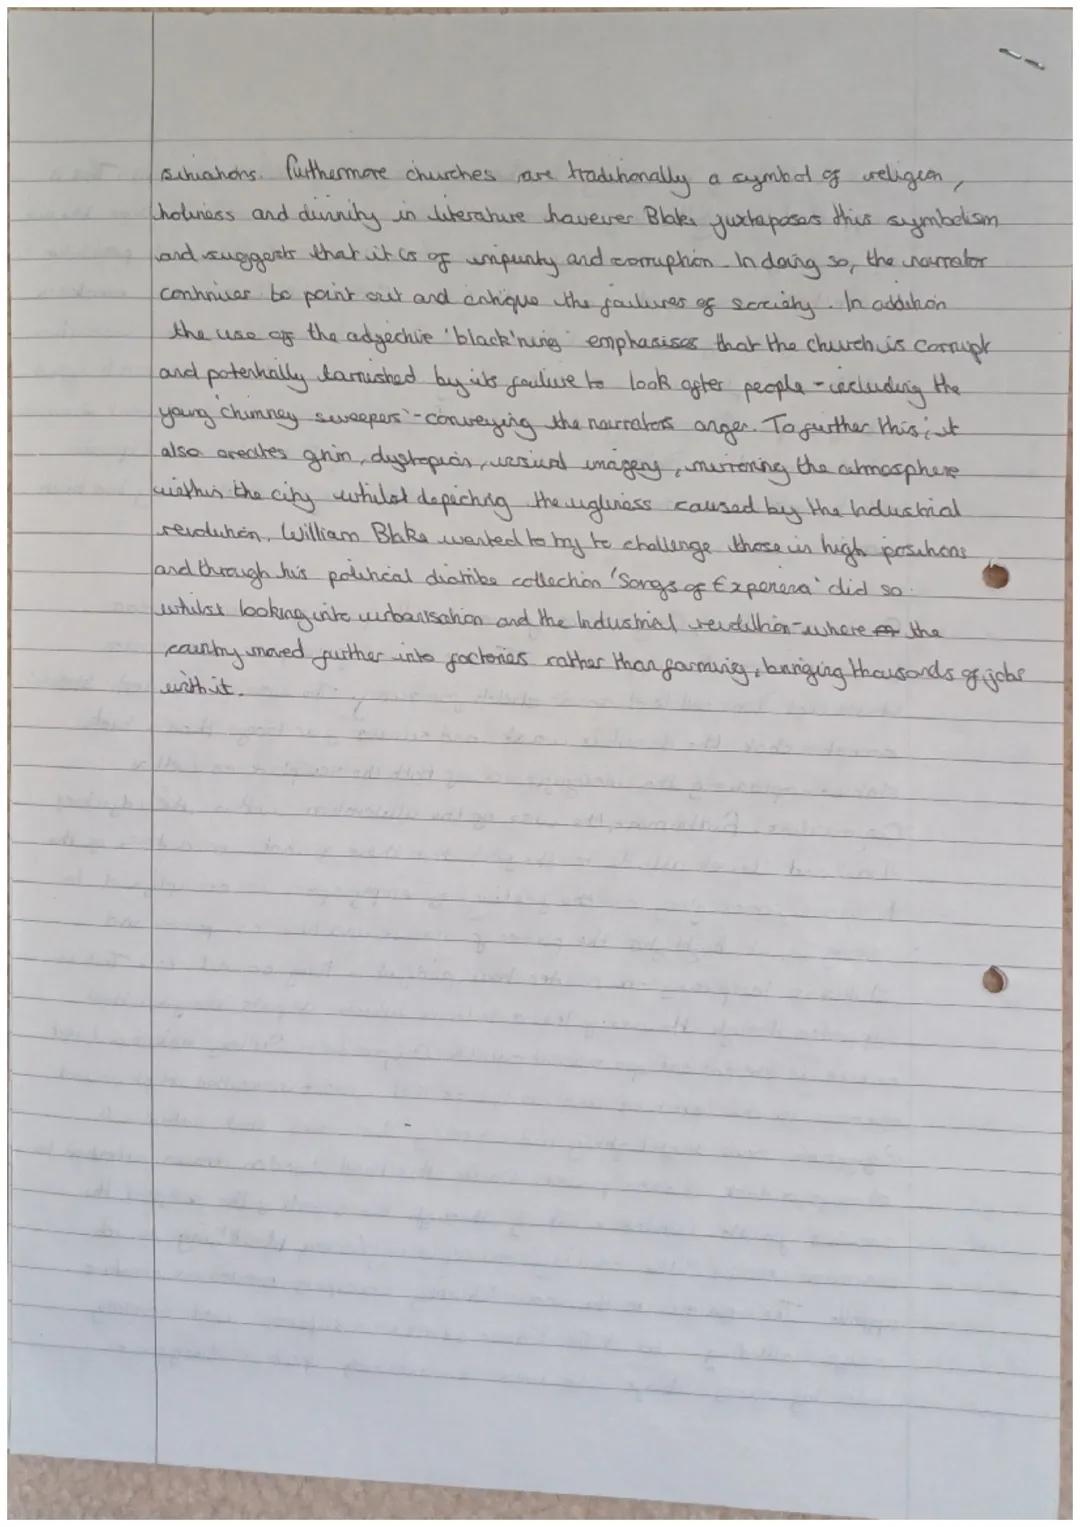 situations. Furthermore churches are traditionally a symbol of religion,
holiness and divinity in literature however Blake juxtaposes this symbolism
and suggests that it is of impurity and corruption. In doing so, the narrator
continues to point out and critique the failures of society. In addition
the use of the adjective 'black'ning' emphasises that the church is corrupt
and potentially tarnished by its failure to look after people - including the
young 'chimney sweepers' - conveying the narrators anger. To further this, it
also creates grim, dystopian, visual imagery, mirroring the atmosphere
within the city whilst depicting the ugliness caused by the Industrial
revolution. William Blake wanted to try to challenge those in high positions
and through his political diatribe collection 'Songs of Experience' did so
whilst looking into urbanisation and the Industrial revolution - where the
country moved further into factories rather than farming, bringing thousands of jobs
with it.